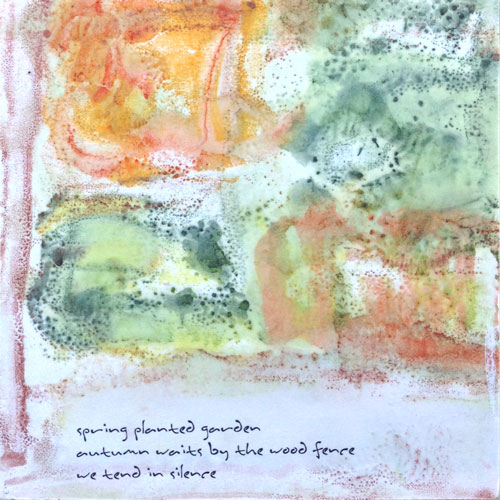 spring planted garden
autumn waits by the wood fence
we tend in silence